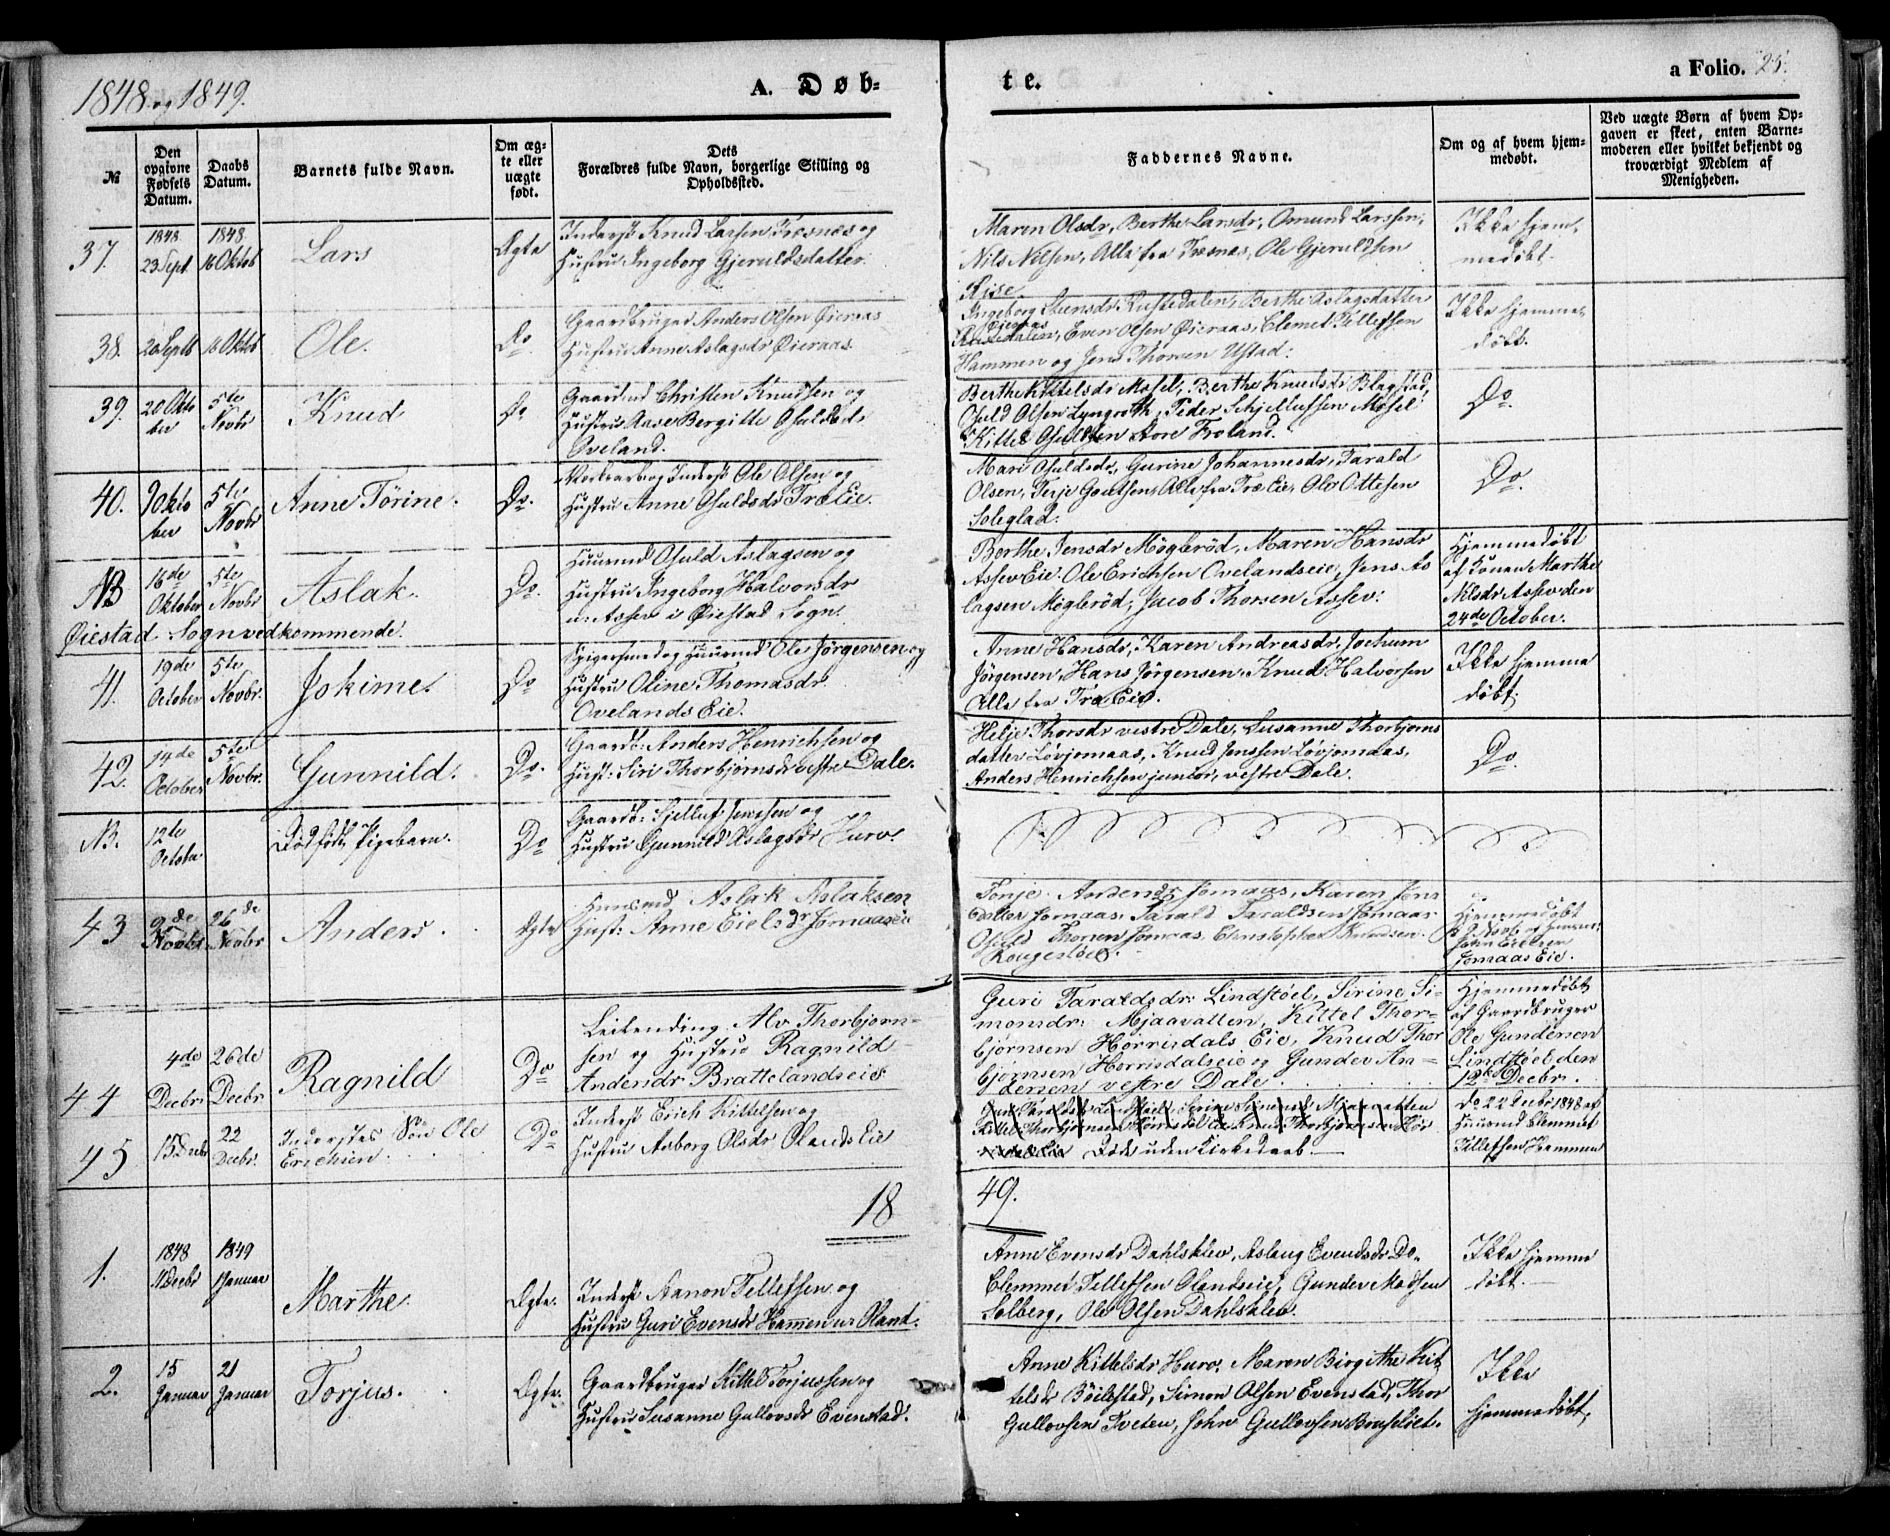 1848 og 1849.
A. Døb-
te.
a Folio. 25.
№
Den opgivne Fødsels Datum.
Daabs Datum.
Barnets fulde Navn.
Om ægte eller uægte født.
Dets
Forældres fulde Navn, borgerlige Stilling og
Opholdssted.
Faddernes Navne.
Om og af hvem hjemmedøbt.
Ved uægte Børn af hvem Opgaven er skeet, enten Barnemoderen eller hvilket bekjendt og troværdigt Medlem af Menigheden.
37.
1848
23 Sept.
1848
16 Oktob
Lars
Ægte
Inderst Knud Larsen Træsnæs og
Hustru Ingeborg Gjeruldsdatter.
Maren Olsdr, Berthe Larsdr, Omund Larssen,
Nils Nilsen, Alle fra Træsnæs, Ole Gjeruldsen
Rise
Ikke hjem
medøbt.
38.
20 Septb
16 Oktob
Ole.
Do
Gaardbruger Anders Olsen Øieraas
Hustru Anne Aslagsdr Øieraas.
Ingeborg Rustedalen, Berthe Aslagsdatter
Øieraas
Even Olsen Øieraas, Clemet Tellefsen
Hammen og Jens Thorsen Ustad:
Ikke hjemme
døbt.
39.
20 Okto
ber
5te
Novbr
Knud
Do
Gaardmd Christen Knudsen og
Hustru Aase Bergitte Osuldsd.
Oveland.
Berthe Kittelsdr Mosel, Berthe Knudsdr Blagstad,
Osuld Olsen Lyngroth, Peder Schjellufsen Mosel
Kittel Osuldsen store Froland.
Do.
40.
9 Okto
ber
5te
Novbr
Anne Tørine.
Do.
og Inderst Ole Olsen og
Hustru Anne Osuldsdr Træ Eie.
Mari Osuldsdr, Gurine Johannesdr, Tarald
Olsen, Terje Goutsen, Alle fra Træ Eie, Ole Ottesen
Soleglad.
Do.
NB
16de
Oktober
5te
Novbr
Aslak.
Do.
Huusmd Osuld Aslagsen og
Hustru Ingeborg Halvorsdr
u: Assev i Øiestad Sogn.
Berthe Jensdr Møglerød, Maren Hansdr
Assev Eie. Ole Erichsen Ovelandseie, Jens As
lagsen Møglerød, Jacob Thorsen Assev:
Hjemmedøbt
af Konen Marthe
Nilsdr Assev den
24de October.
Øiestad Sogn vedkommende.
41.
19de
October
5te
Novbr.
Jokime.
Do
Spigersmed og Huusmd Ole Jørgensen og
Hustru Oline Thomasdr
Ovelands Eie.
Anne Hansdr, Karen Andreasdr, Jochum
Jørgensen, Hans Jørgensen, Knud Halvorsen
Alle fra Træ Eie.
Ikke hjemme
døbt.
42.
14de
October
5te
Novbr.
Gunnild.
Do.
Gaardb: Anders Henrichsen og
Hust: Siri Thorbjørnsdr vestre Dale.
Helje Thorsdr vestre Dale, Susanne Thorbjørns
datter Løvjomaas, Knud Jenssen Løvjomaas,
Anders Henrichsen junior, vestre Dale.
Do.
NB.
12te
October
Dødfødt Pigebarn.
Do
Gaardb: Sjelluf Jenssen og
Hustru Gunnild Aslagsdr Hurv.
43
9de
Novbr
26de
Novbr
Anders.
Ægte
Huusmd Aslak Aslaksen
Hust: Anne Eielsdr Jomaaseie
Tonje Andersdr Jomaas, Karen Jens
datter Jomaas. Tarald Taraldsen Jomaas
Osuld Thorsen Jomaas, Christopher Knudsen
Rougestøel.
Hjemmedøbt
John Eielsen
Jomaas Eie.
44
4de
Decbr.
26de
Decbr
Ragnild
Do
Leilending Alv Thorbjørn-
sen og Hustru Ragnild
Andersdr Brattelandseie
Guri Taraldsdr Lindstøel, Sirine Si-
monsdr: Mjaavatten, Kittel Thor-
bjørnsen Horrisdals Eie, Knud Thor
bjørnsen Horrisdalseie og Gunder An-
dersen vestre Dale.
Hjemmedøbt
af Gaardbruger
Ole Gundersen
Lindstøel den
12te Decbr.
45
15 Decbr
22
Decbr.
Inderstes Søn Ole
Erichsen
Do
Inderst Erich Kittelsen og
Hustru Aaborg Olsdr Olands Eie
Guri Taraldsdr Lindstøel, Sirine Simonsd Mjaavatten
Kittel Thorbjørnsen Horrisdal Eie Knud Thorbjørnsen Hor
risdalseie Døde uden Kirkedaab.
Do 22 Decbr 1848 af
Huusmd Clemmet
Tellefsen Hammen
18
49.
1.
1848
11 Decbr
1849
1 Januar
Marthe.
Ægte.
Inderst Aanon Tellefsen og
Hustru Guri Evensdr Hammen u: Oland.
Anne Evensdr Dahlsklev, Aslaug Evendsdr Do.
Clemmet Tellefsen Olandseie, Gunder Madsen
Solberg, Ole Olsen Dahlsklev.
Ikke hjemme
døbt.
2.
15
Januar
21
Januar
Torjus.
Ægte.
Gaardbruger Kittel Torjussen og
Hustru Susanne Gullovsdr Evenstad.
Anne Kittelsdr Hurv. Maren Birgithe Kit
telsdr Bøilestad, Simon Olsen Evenstad, Thor
Gullovsen Tveten, John Gullovsen
Ikke
hjemmedøbt.